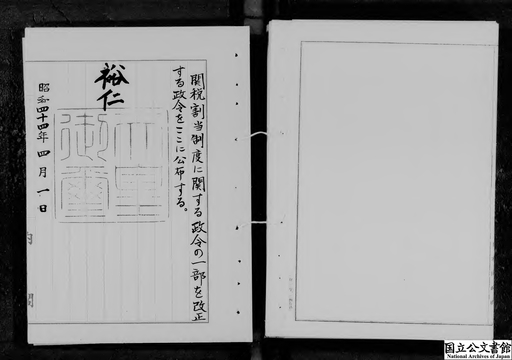 関税割当制度に関する政令の一部を改正
する政令をここに公布する。
裕仁
昭和四十四年四月一日
国立公文書館
National Archives of Japan